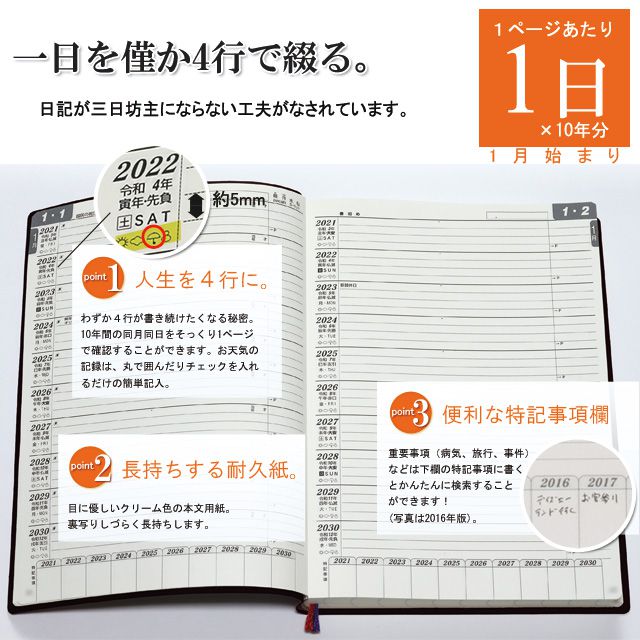 一日を僅か4行で綴る。
日記が三日坊主にならない工夫がなされています。
1ページあたり
1日
×10年分
1月始まり
2022
令和 4年
寅年·先負
土SAT
約5mm
1·1
1·2
point1 人生を4行に。
わずか4行が書き続けたくなる秘密。
10年間の同月同日をそっくり1ページ
で確認することができます。お天気の
記録は、丸で囲んだりチェックを入れ
るだけの簡単記入。
point2 長持ちする耐久紙。
目に優しいクリーム色の本文用紙。
裏写りしづらく長持ちします。
point3 便利な特記事項欄
重要事項（病気、旅行、事件）
などは下欄の特記事項に書く
とかんたんに検索すること
ができます！
（写真は2016年版）。
2016 2017
お宮参り
2021
2022
2023
2024
2025
2026
2027
2028
2029
2030
特記事項 2021 2022 2023 2024 2025 2026 2027 2028 2029 2030
2021
2022
SUN
2023
2024
2025
2026
2027
2028
2029
2030
特記事項 2021 2022 2023 2024 2025 2026 2027 2028 2029 2030